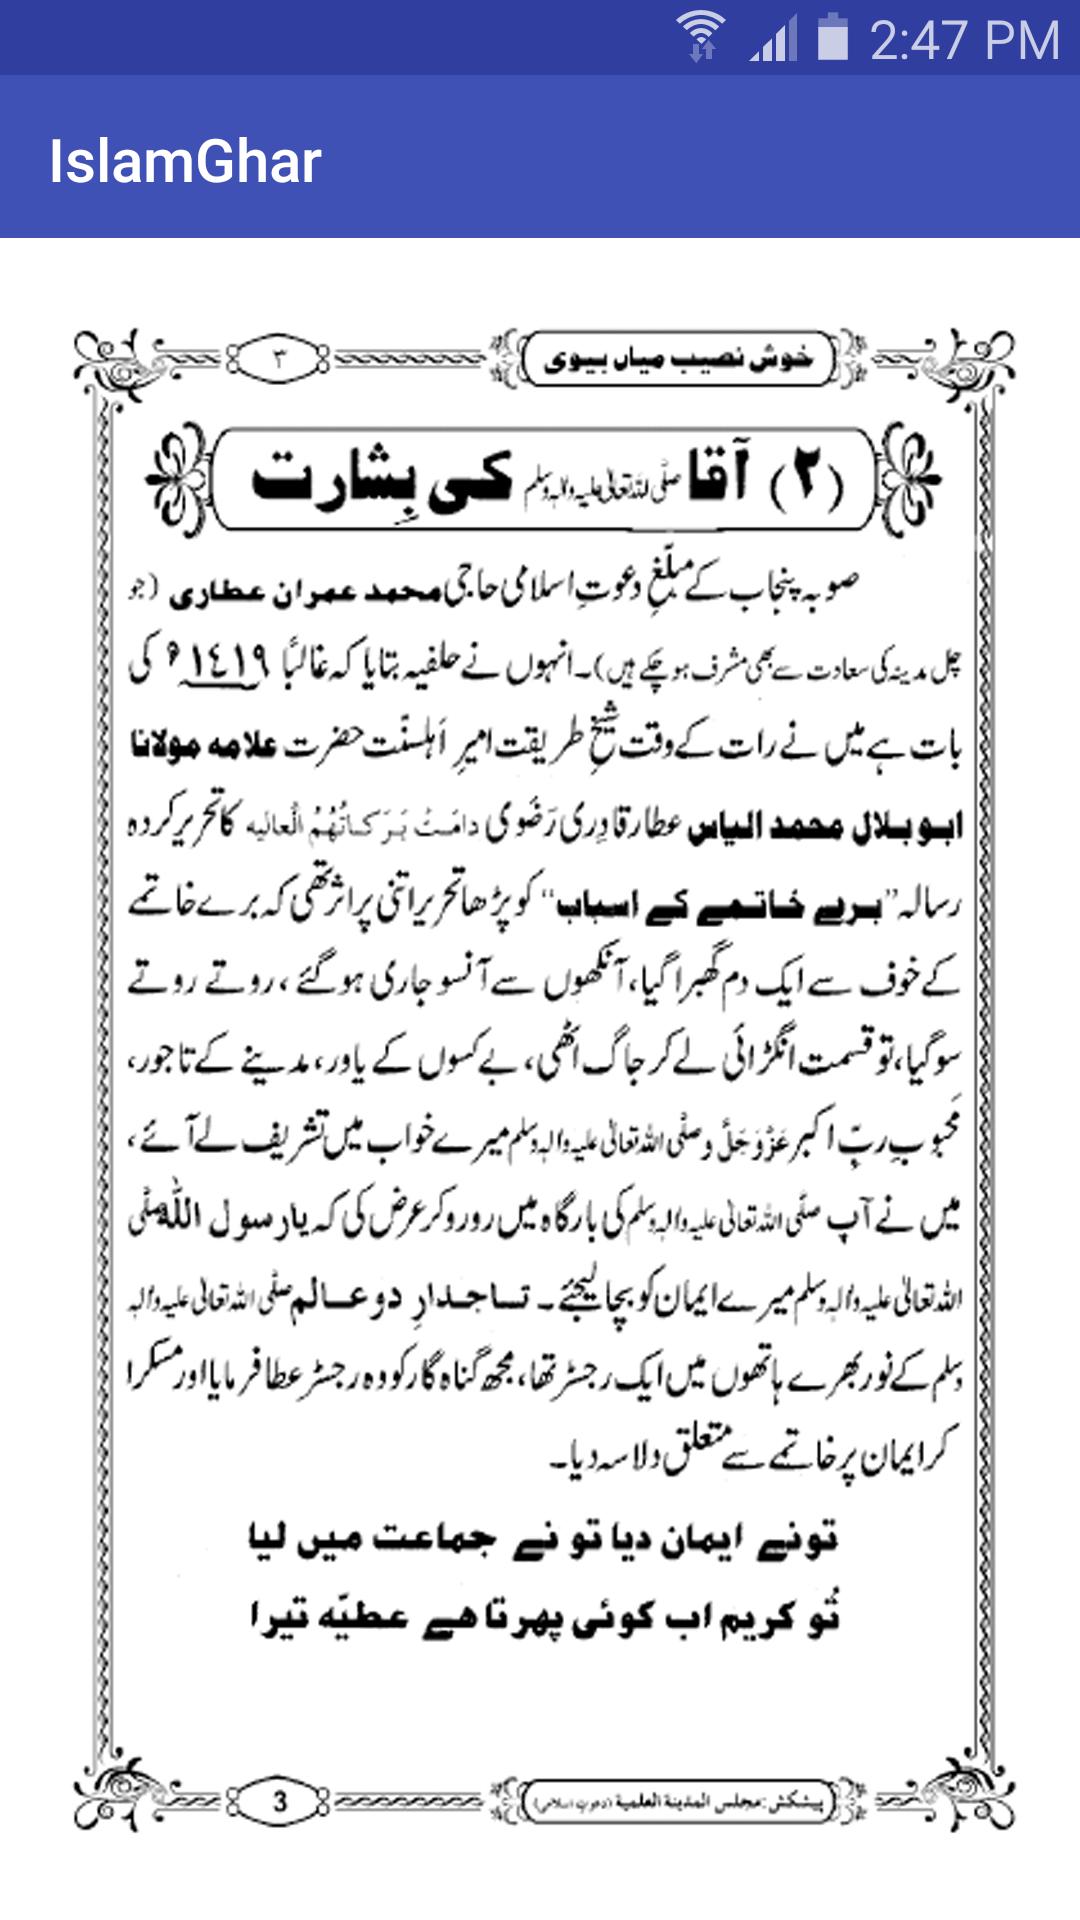 2:47 PM
IslamGhar
خوش نصیب میاں بیوی
۳
(۲) آقا صلَّی اللہ تعالیٰ علیہ والہ وسلم کی بِشارت
صوبہ پنجاب کے مبلّغِ دعوتِ اسلامی حاجی محمد عمران عطاری (جو
چل مدینہ کی سعادت سے بھی مشرف ہو چکے ہیں)۔ انہوں نے حلفیہ بتایا کہ غالباً ۱٤۱۹ھ کی
بات ہے میں نے رات کے وقت شیخِ طریقت امیرِ اَہلسنّت حضرت علامہ مولانا
ابو بلال محمد الیاس عطار قادِری رَضَوی دامَتْ بَرَکاتُھُمُ الْعالیہ کا تحریر کردہ
رسالہ ”برے خاتمے کے اسباب“ کو پڑھا تحریر اتنی پر اثر تھی کہ برے خاتمے
کے خوف سے ایک دم گھبرا گیا، آنکھوں سے آنسو جاری ہو گئے، روتے روتے
سو گیا، تو قسمت انگڑائی لے کر جاگ اٹھی، بے کسوں کے یاور، مدینے کے تاجور،
مَحبوبِ ربِّ اکبر عَزَّوَجَلَّ و صلَّی اللہ تعالیٰ علیہ والہ وسلم میرے خواب میں تشریف لے آئے،
میں نے آپ صلَّی اللہ تعالیٰ علیہ والہ وسلم کی بارگاہ میں رو رو کر عرض کی کہ یارسول اللہ صلَّی
اللہ تعالیٰ علیہ والہ وسلم میرے ایمان کو بچا لیجئے۔ تاجدارِ دو عالم صلَّی اللہ تعالیٰ علیہ والہ
وسلم کے نور بھرے ہاتھوں میں ایک رجسٹر تھا، مجھ گناہ گار کو وہ رجسٹر عطا فرمایا اور مسکرا
کر ایمان پر خاتمے سے متعلق دلاسہ دیا۔
تونے ایمان دیا تو نے جماعت میں لیا
تُو کریم اب کوئی پھرتا ھے عطیّہ تیرا
پیشکش: مجلس المدینۃ العلمیۃ (دعوتِ اسلامی)
3